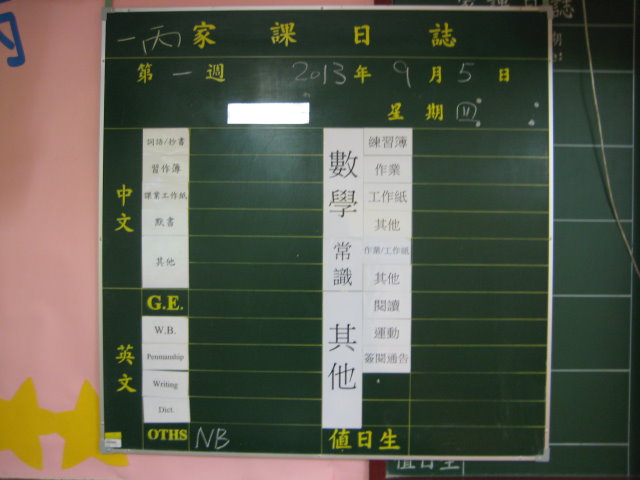 一丙家課日誌
第一週 2013年9月5日
星期四
中文
詞語/抄書
習作簿
課業工作紙
默書
其他
英文
G.E.
W.B.
Penmanship
Writing
Dict.
OTHS NB
數學
練習簿
作業
工作紙
其他
常識
作業/工作紙
其他
其他
閱讀
運動
簽閱通告
值日生
家課日誌
值日生